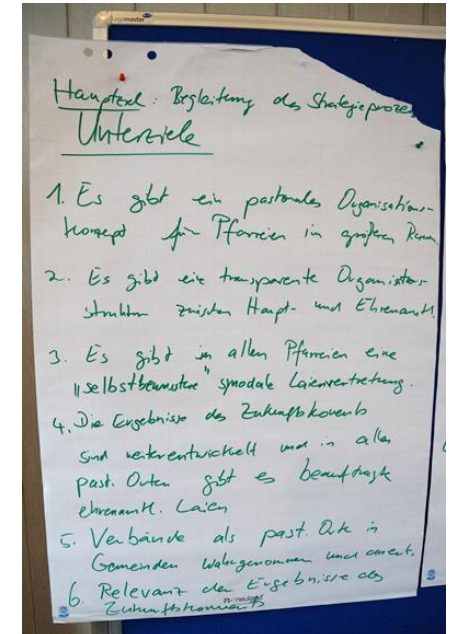 Hauptziel: Begleitung des Strategieprozes
Unterziele
1. Es gibt ein pastorales Organisations-
konzept für Pfarreien in größeren Raum.
2. Es gibt eine transparente Organisations-
struktur zwischen Haupt- und Ehrenamtl.
3. Es gibt in allen Pfarreien eine
"selbstbewusstere" synodale Laienvertretung.
4. Die Ergebnisse des Zukunftskonvents
sind weiterentwickelt und in allen
past. Orten gibt es beauftragte
ehrenamtl. Laien
5. Verbände als past. Orte in
Gemeinden wahrgenommen und anerk.
6. Relevanz der Ergebnisse des
Zukunftskonvents
neuland